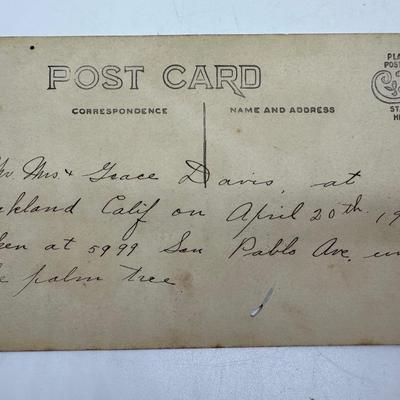 POST CARD
CORRESPONDENCE
NAME AND ADDRESS
Mrs & Grace Davis, at
kland Calif on April 20th, 19
ken at 5999 San Pablo Ave, un
e palm tree.